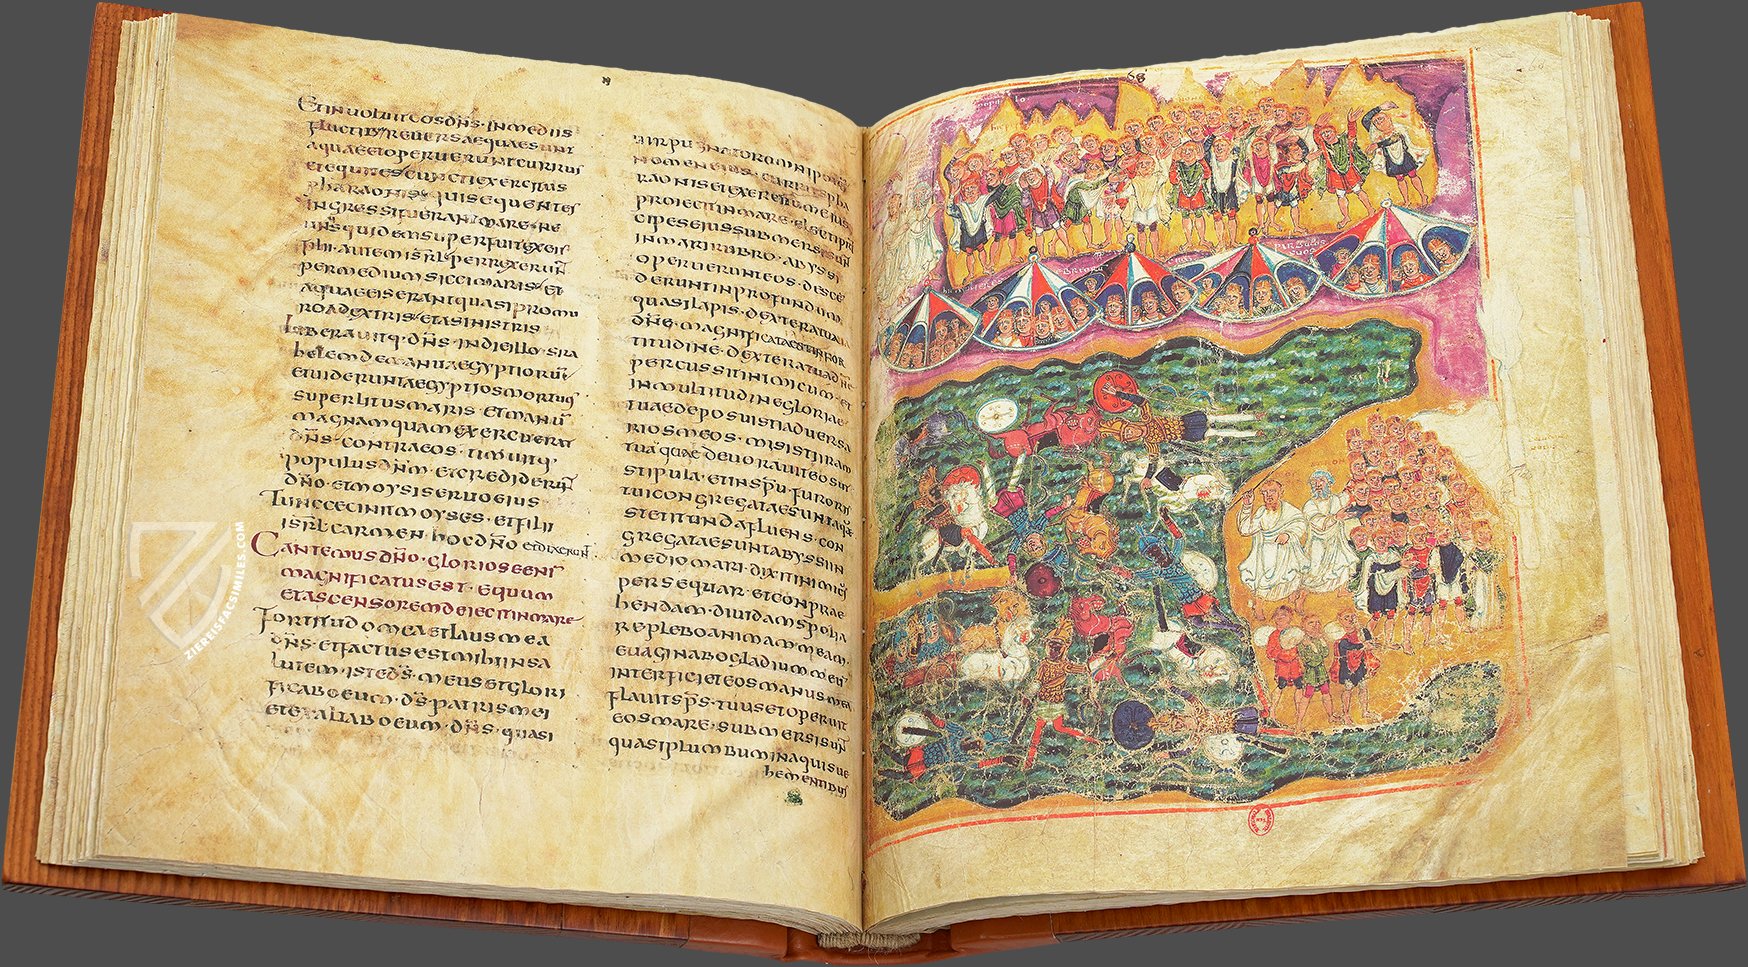 Et in voluit eos dñs · in mediis
fluctib; reversaeq; aquae sunt
aquae et operuerunt currus
et equites cuncti exercitus
pharaonis · qui sequentes
ingressi fuerant mare · ne
unus quidem superfuit ex eis
phi · autem isrl perrexerunt
per medium sicci maris · et
aquae eis erant quasi pro mu
ro a dextris et a sinistris
Liberavitq · dñs · in die illo · isra
hel em de manu aegyptiorum
et viderunt aegyptios mortuos
super litus maris · et manu
magnam quam exercuerat
dñs · contra eos · timuitq ·
populus dñm · et crediderun
dño · et moysi servo eius
Tunc cecinit moyses · et filii
isrl carmen hoc dño et dixerunt
Cantemus dño · gloriose enim
magnificatus est · equum
et ascensorem deiecit in mare
Fortitudo mea et laus mea
dñs · et factus est mihi in sa
lutem · iste dñs · meus et glori
ficabo eum · ds · patris mei
et exaltabo eum · dñs · quasi
vir pugnator omnipotens
nomen eius · currus pha
raonis et exercitum eius
proiecit in mare · electi prin
cipes eius submersi sun
in mari rubro · abyssi
operuerunt eos · desce
derunt in profundum
quasi lapis · dextera tua
dñe · magnificata est in for
titudine · dextera tua dñe
percussit inimicum · et
in multitudine gloriae
tuae deposuisti adversa
rios meos · misisti iram
tua quae devoravit eos sicut
stipula · et in spu furoris
tui congregatae sunt aquae
stetit unda fluens · con
gregatae sunt abyssi in
medio mari · dixit inimicus
persequar · et conprae
hendam · dividam spolia
replebo anima meam ·
evaginabo gladium meum
interficiet eos manus mea
flavit sps · tuus et operuit
eos mare · submersi sunt
quasi plumbum in aquis ve
hementibus
68
ZIEREISFACSIMILES.COM